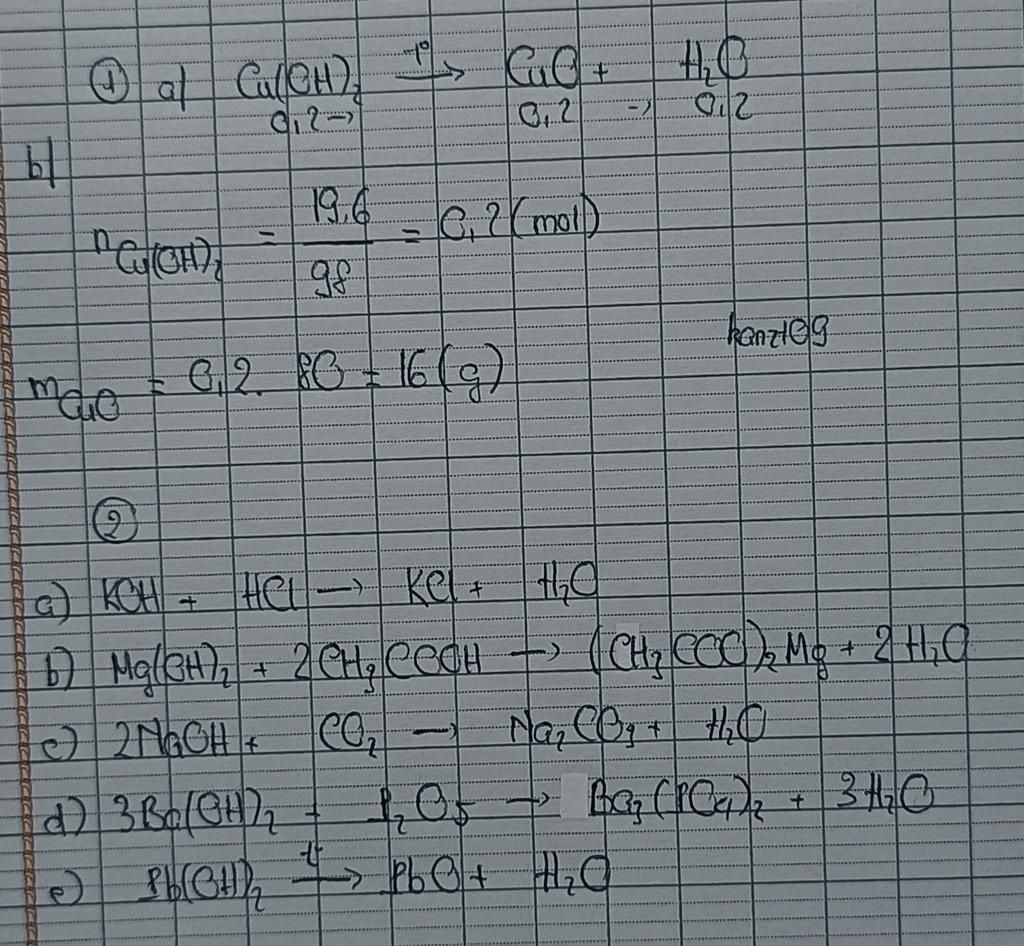 ① a) Cu(OH)₂ —t°→ CuO + H₂O
0,2 → 0,2 → 0,2
b)
nCu(OH)₂ = 19,6/98 = 0,2 (mol)
kanzt09
mCuO = 0,2. 80 = 16 (g)
②
a) KOH + HCl → KCl + H₂O
b) Mg(OH)₂ + 2CH₃COOH → (CH₃COO)₂Mg + 2H₂O
c) 2NaOH + CO₂ → Na₂CO₃ + H₂O
d) 3Ba(OH)₂ + P₂O₅ → Ba₃(PO₄)₂ + 3H₂O
e) Pb(OH)₂ —t°→ PbO + H₂O